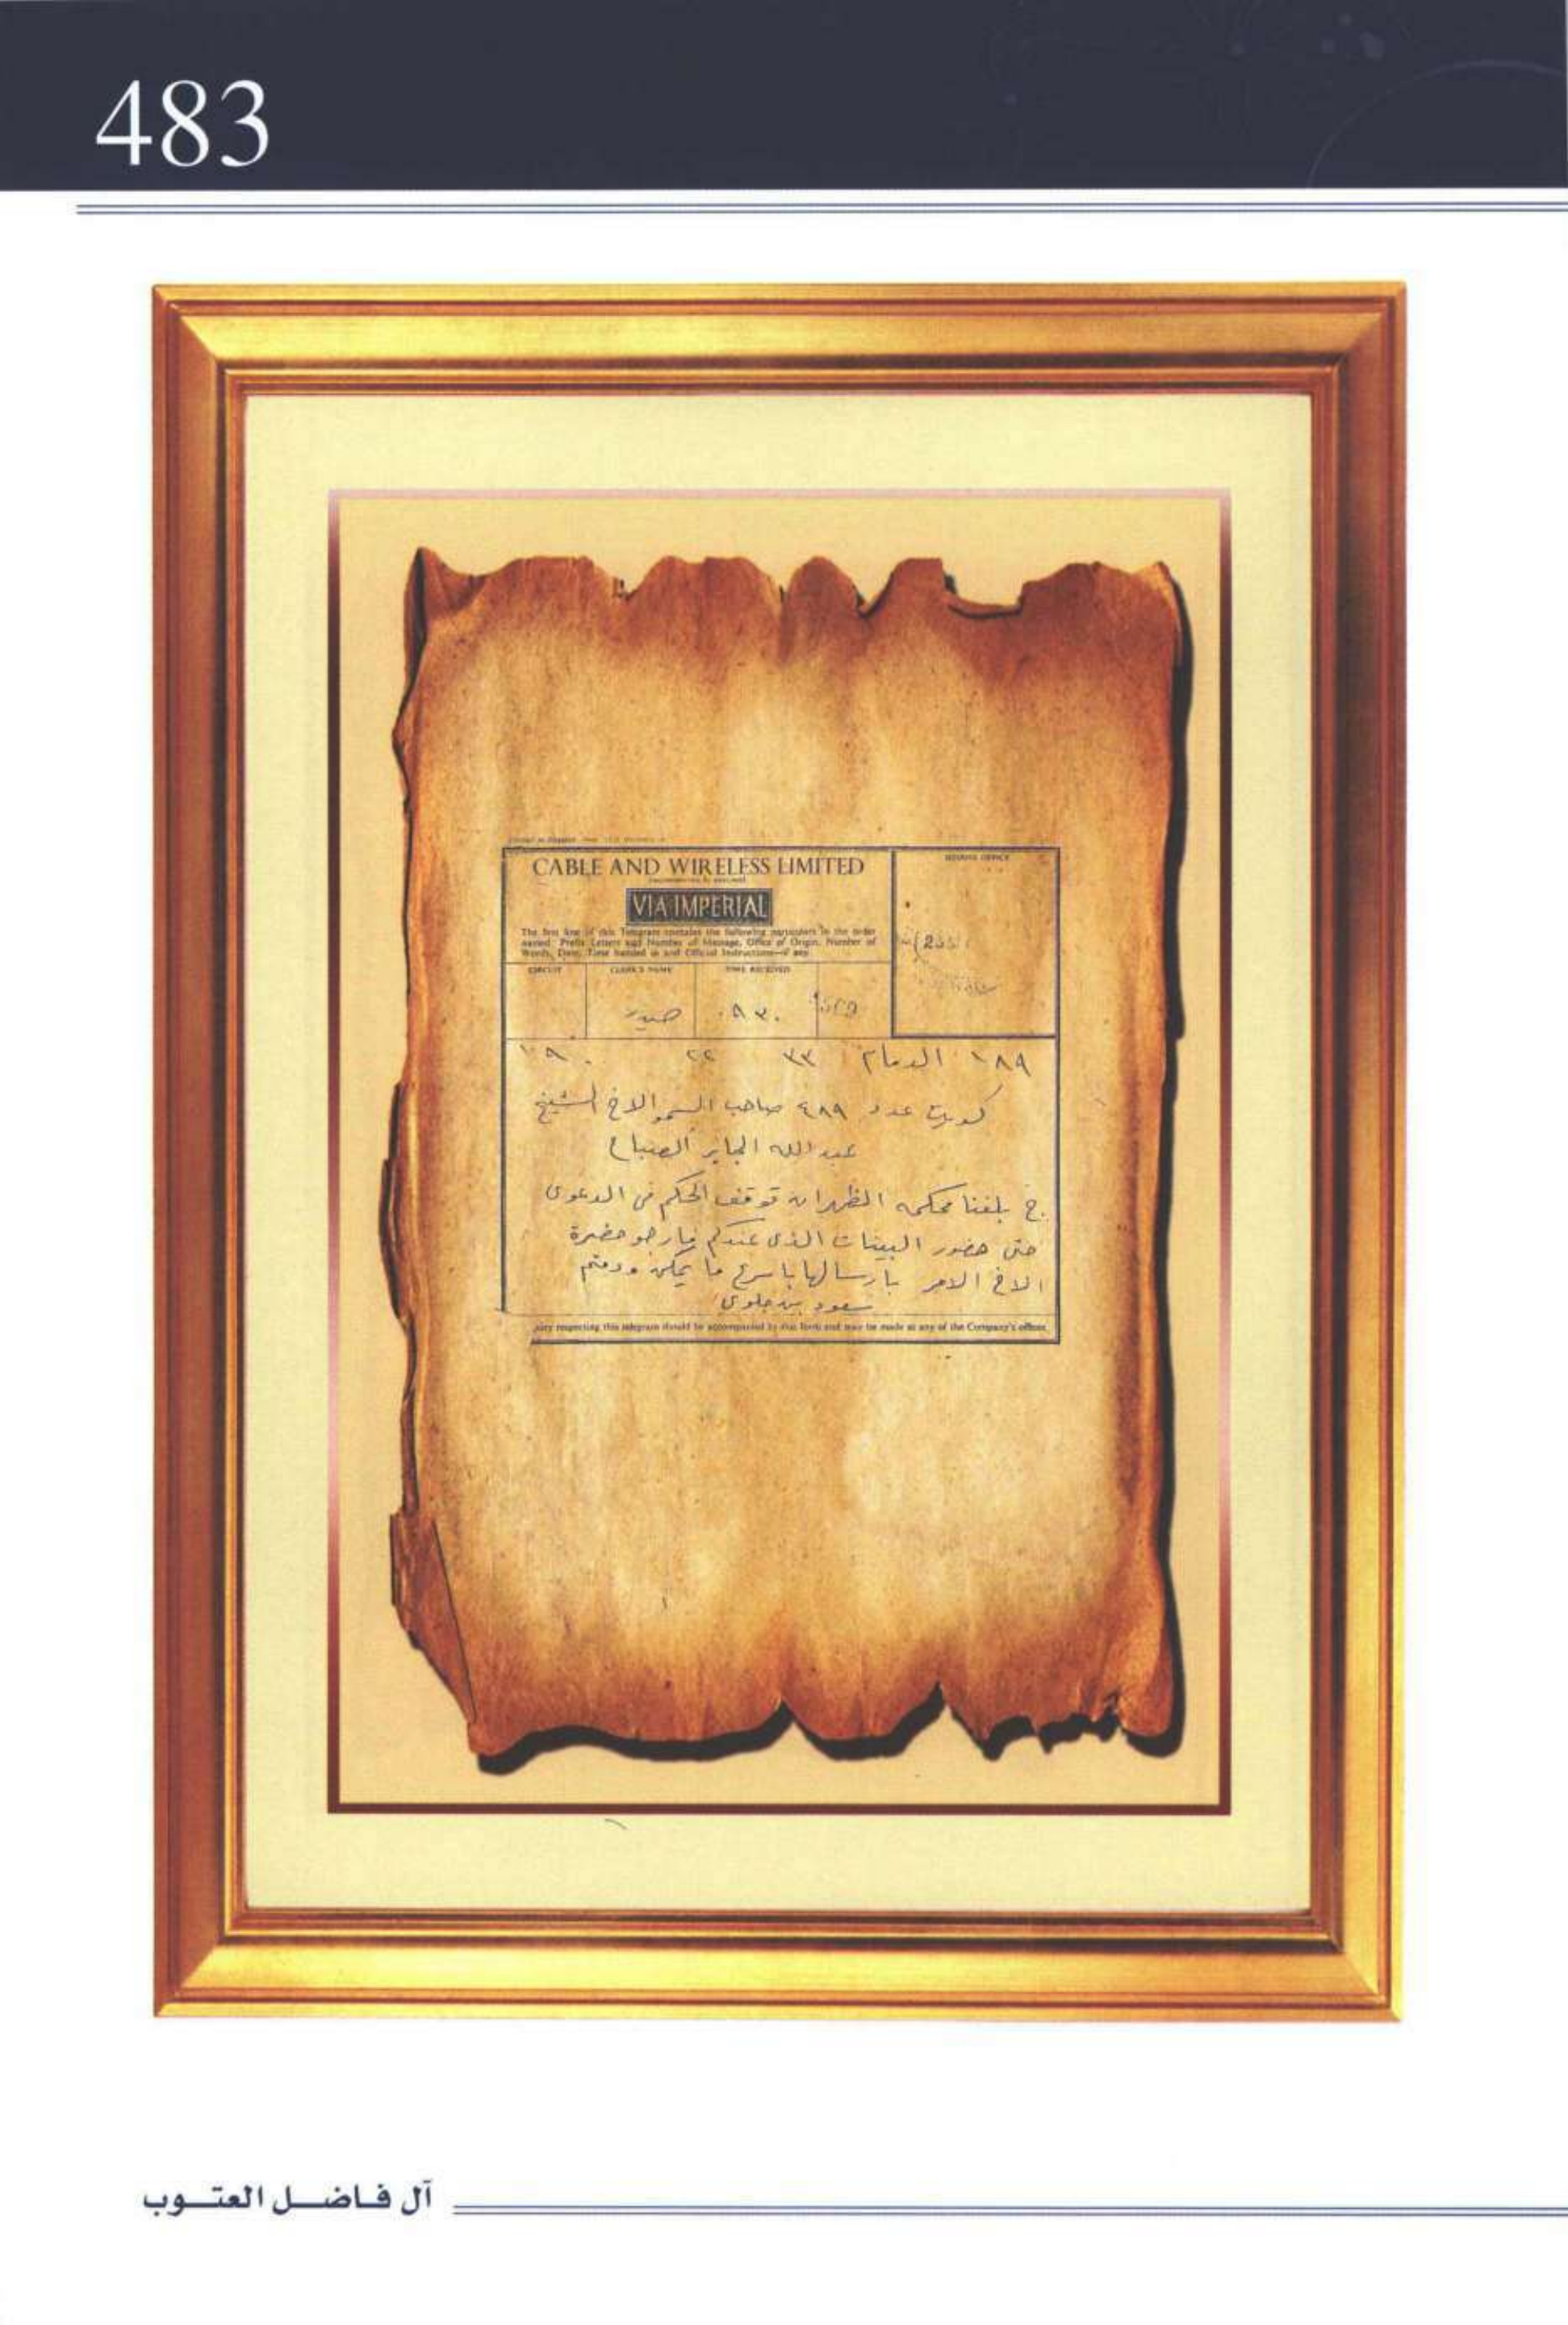 483
CABLE AND WIRELESS LIMITED
VIA IMPERIAL
The first line of this Telegram contains the following particulars in the order
named. Prefix Letters and Number of Message, Office of Origin, Number of
Words, Date, Time handed in and Official Instructions—if any
CIRCUIT CLERK'S NAME TIME RECEIVED
ISSUING OFFICE
٠٩٣٠
١٨٩ الدمام ٣٣ ٢٢
كويت عدد ٤٨٩ صاحب السمو الاخ الشيخ
عبد الله الجابر الصباح
ج بلغنا محكمه الظهران توقف الحكم في الدعوى
حتى حضور البينات الذى عندكم فارجو حضرة
الاخ الامر بارسالها باسرع ما يمكن ودمتم
سعود بن جلوى
respecting this telegram should be accompanied by this form and may be made at any of the Company's offices
آل فاضل العتوب